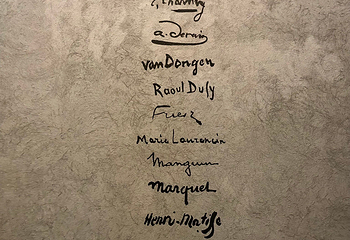 a. derain
vanDongen
Raoul Dufy
Friesz
Marie Laurencin
Manguin
marquet
Henri-Matisse